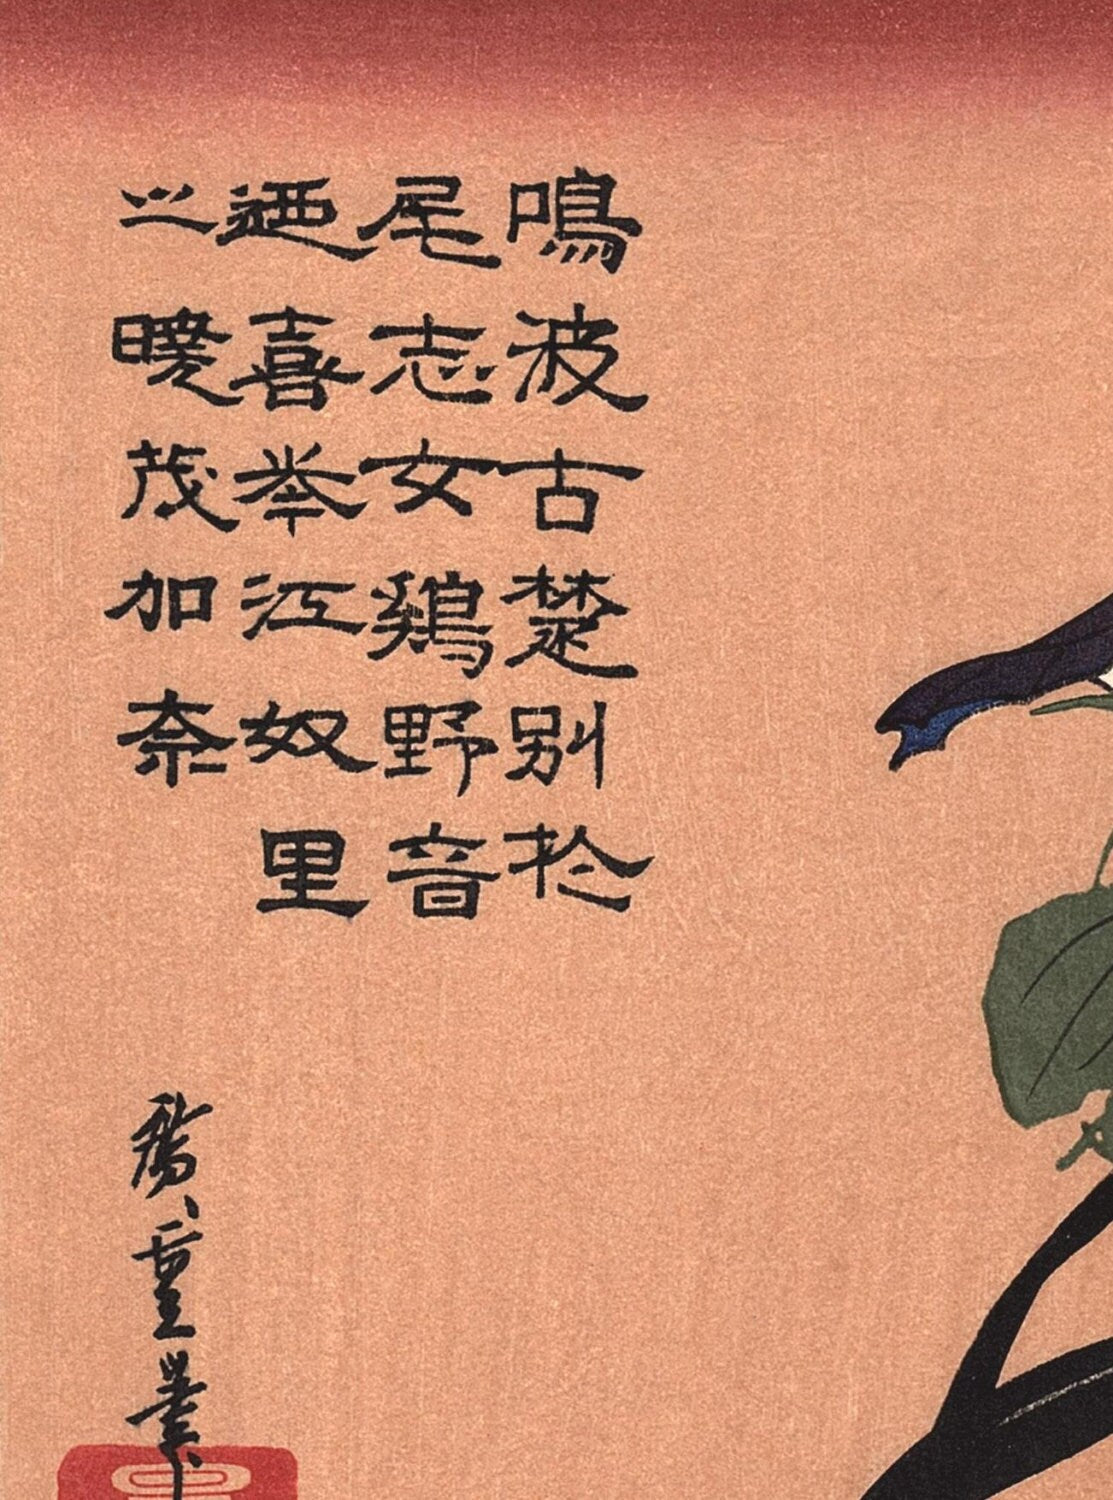 鳴波古楚別扵
尾志女鷄野音
迺喜挙江奴里
之暁茂加奈
廣重筆